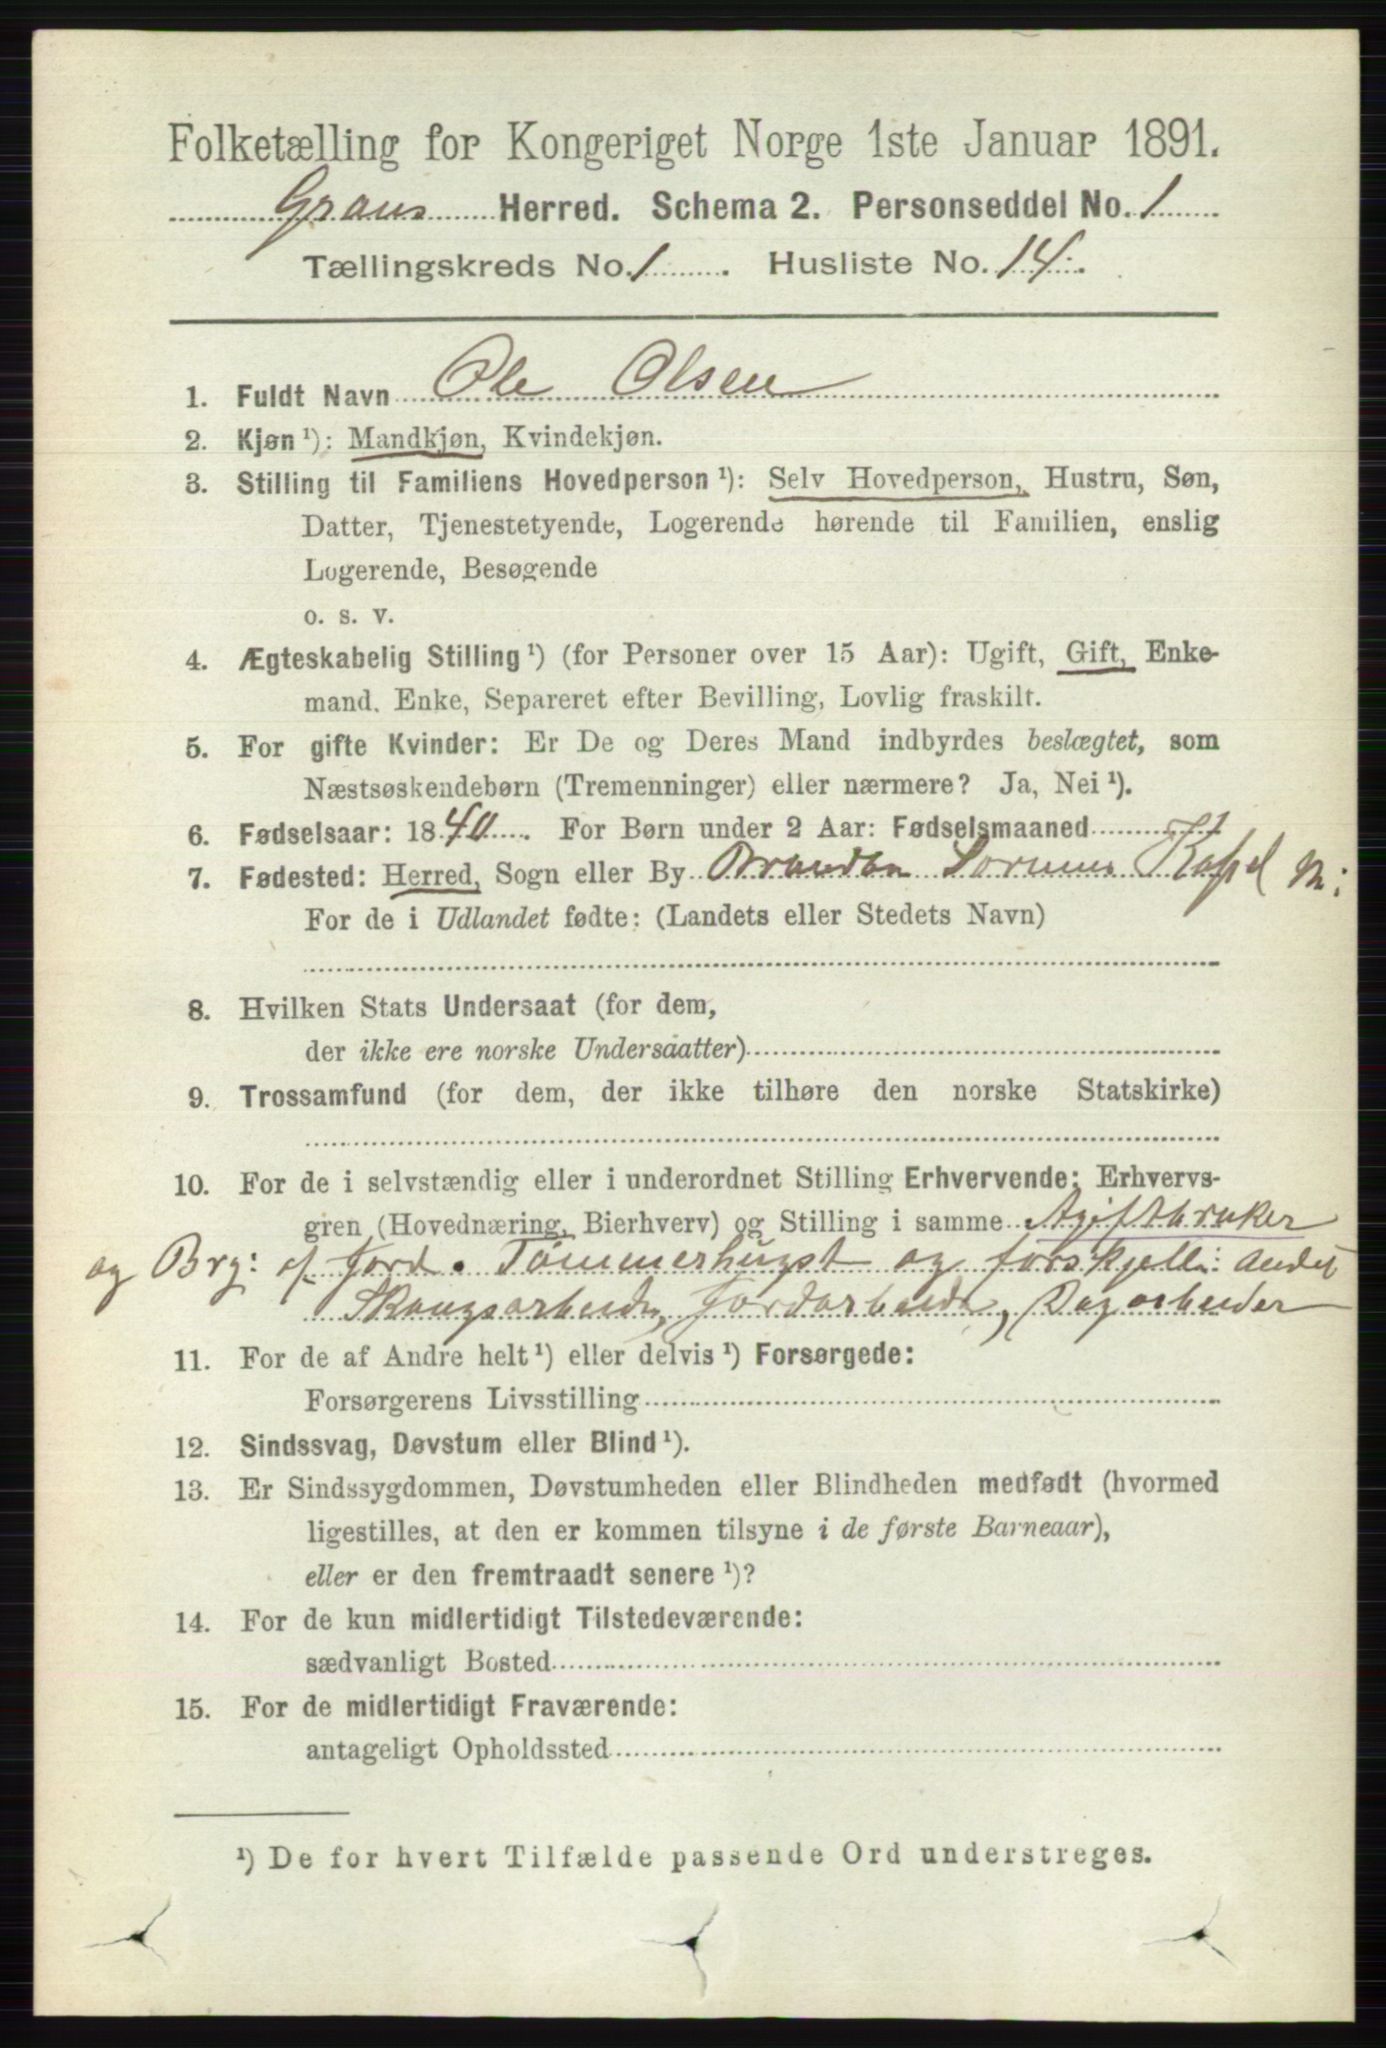 Folketælling for Kongeriget Norge 1ste Januar 1891.
Grans Herred. Schema 2. Personseddel No. 1
Tællingskreds No. 1. Husliste No. 14.
1. Fuldt Navn Ole Olsen
2. Kjøn ¹): Mandkjøn, Kvindekjøn.
3. Stilling til Familiens Hovedperson ¹): Selv Hovedperson, Hustru, Søn,
Datter, Tjenestetyende, Logerende hørende til Familien, enslig
Logerende, Besøgende
o. s. v.
4. Ægteskabelig Stilling ¹) (for Personer over 15 Aar): Ugift, Gift, Enke-
mand, Enke, Separeret efter Bevilling, Lovlig fraskilt.
5. For gifte Kvinder: Er De og Deres Mand indbyrdes beslægtet, som
Næstsøskendebørn (Tremenninger) eller nærmere? Ja, Nei ¹).
6. Fødselsaar: 1840. For Børn under 2 Aar: Fødselsmaaned
7. Fødested: Herred, Sogn eller By Brandbu
For de i Udlandet fødte: (Landets eller Stedets Navn)
8. Hvilken Stats Undersaat (for dem,
der ikke ere norske Undersaatter)
9. Trossamfund (for dem, der ikke tilhøre den norske Statskirke)
10. For de i selvstændig eller i underordnet Stilling Erhvervende: Erhvervs-
gren (Hovednæring, Bierhverv) og Stilling i samme Agiftbruker
og Brg: af Jord. Tømmerhugst og forskjelli: andet
Skougsarbeide, Jordarbeide, Dagarbeider
11. For de af Andre helt ¹) eller delvis ¹) Forsørgede:
Forsørgerens Livsstilling
12. Sindssvag, Døvstum eller Blind ¹).
13. Er Sindssygdommen, Døvstumheden eller Blindheden medfødt (hvormed
ligestilles, at den er kommen tilsyne i de første Barneaar),
eller er den fremtraadt senere ¹)?
14. For de kun midlertidigt Tilstedeværende:
sædvanligt Bosted
15. For de midlertidigt Fraværende:
antageligt Opholdssted
¹) De for hvert Tilfælde passende Ord understreges.